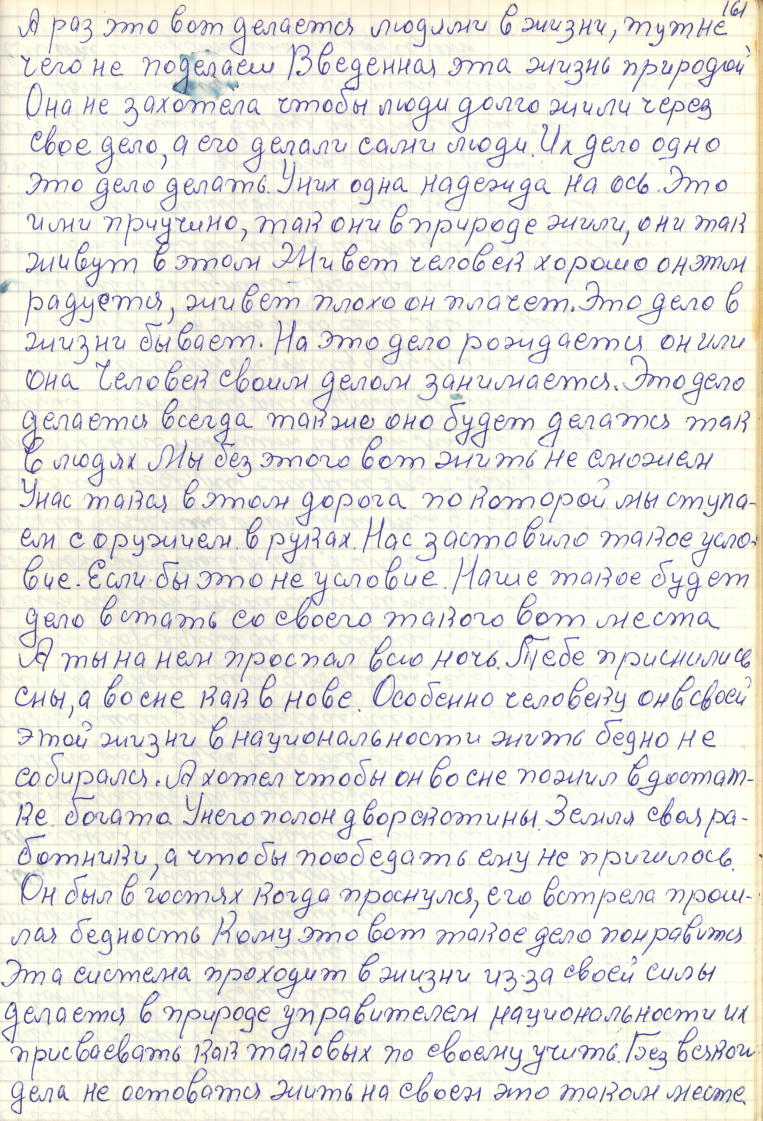 161
А раз это вот делается людями в жизни, тут не
чего не поделаеш Введенная эта жизнь природой
Она не захотела чтобы люди долго жили через
свое дело, а его делали сами люди. Их дело одно
это дело делать. Уних одна надежда на ось. Это
ими приучино, так они в природе жили, они так
живут в этом Живет человек хорошо он этим
радуется, живет плохо он плачет. Это дело в
жизни бывает. На это дело рождается он или
она Человек своим делом занимается. Это дело
делается всегда также оно будет делатся так
в людях Мы без этого вот жить не сможем
Унас такая в этом дорога по которой мы ступа-
ем с оружием в руках. Нас заставило такое усло-
вие. Если бы это не условие. Наше такое будет
дело встать со своего такого вот места
А ты на нем проспал всю ночь. Тебе приснились
сны, а во сне как в нове. Особенно человеку он в своей
этой жизни в национальности жить бедно не
собирался. А хотел чтобы он во сне пожил в достат-
ке. богато Унего полон двор скотины. Земля своя ра-
ботники, а чтобы пообедать ему не пришлось.
Он был в гостях когда проснулся, его встрела прош-
лая бедность Кому это вот такое дело понравится
Эта система проходит в жизни из-за своей силы
делается в природе управителем национальности их
присваевать как таковых по своему учить. Без всякого
дела не остоватся жить на своем это таком месте.